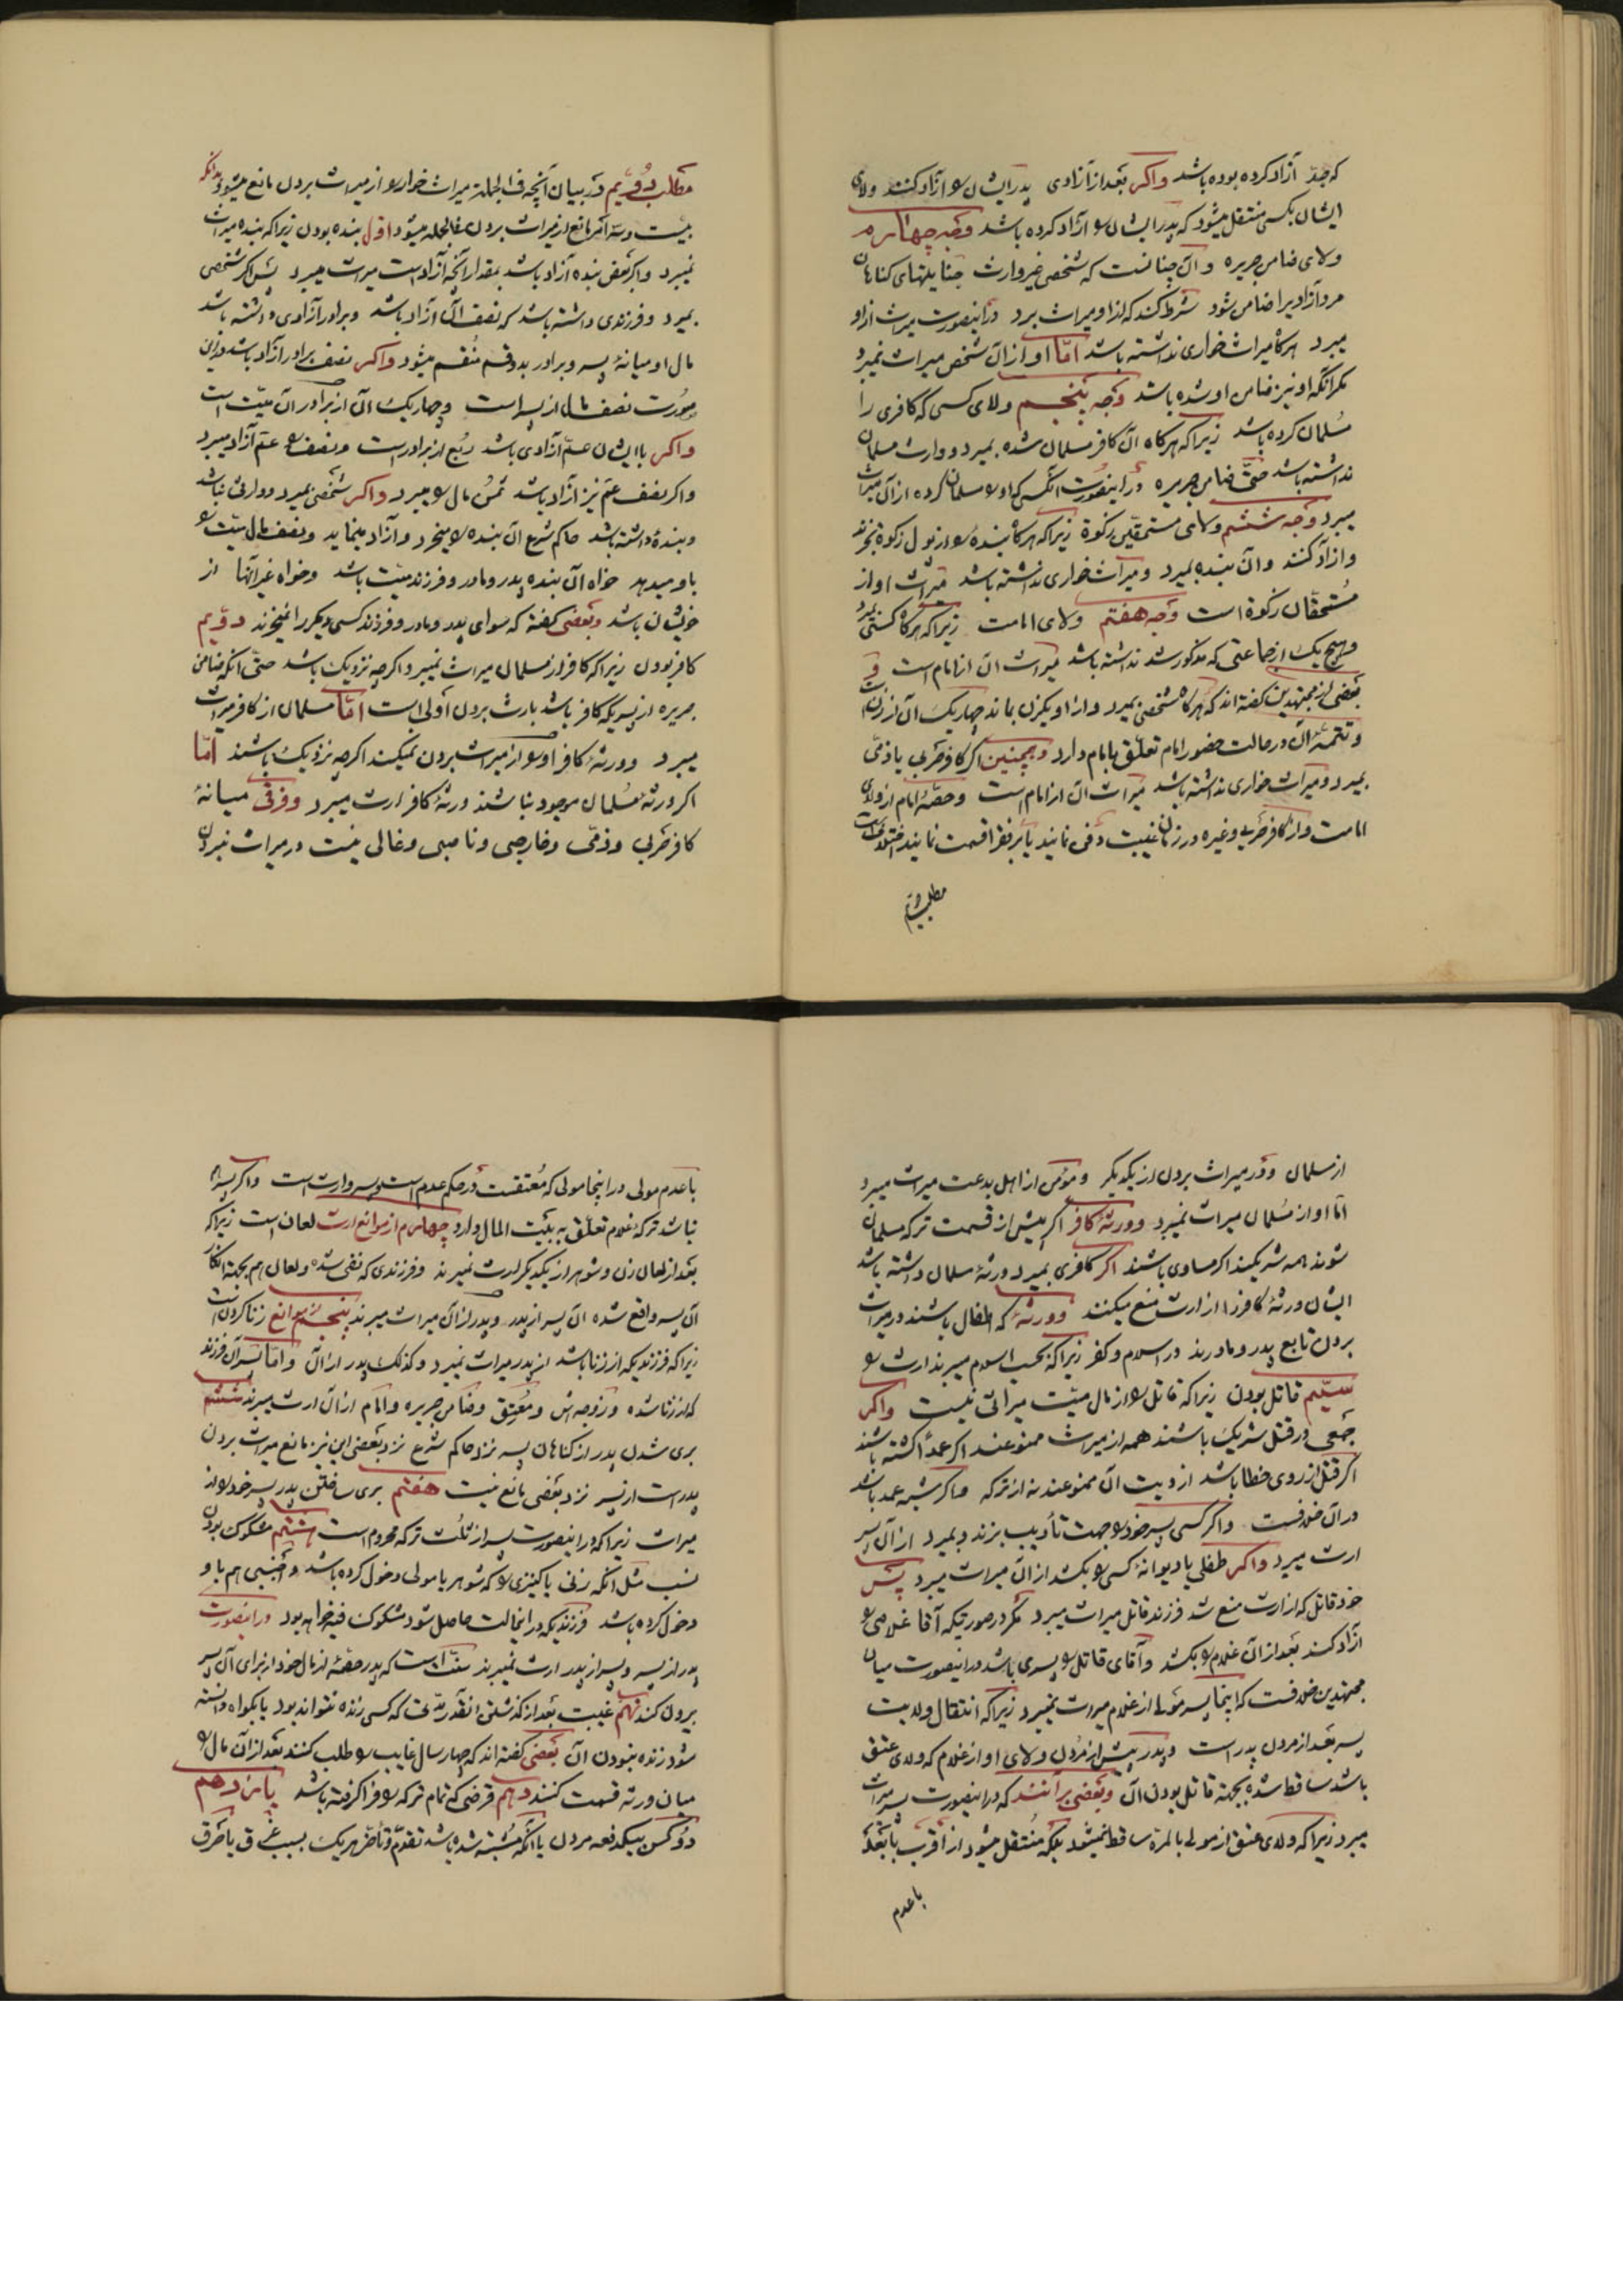 که جدّ آزاد کرده بوده باشد واکر بعد از آزادی پدر ایشان را آزاد کنند ولای
ایشان بکسی منتقل میشود که پدر ایشان را آزاد کرده باشد وجه چهارم
ولای ضامن جریره و آن چنانست که شخصی غیر وارث جنایتهای کناهان
مرد آزادیرا ضامن شود شرط کند که از او میراث برد در اینصورت میراث از او
میبرد هرکاه میراث خواری نداشته باشد امّا او از آن شخص میراث نمیبرد
مکر آنکه او نیز ضامن او شده باشد وجه پنجم ولای کسی که کافری را
مسلمان کرده باشد زیرا که هرکاه آن کافر مسلمان شده بمیرد و وارث مسلمان
نداشته باشد حتّی ضامن جریره در اینصورت آنکس که او را مسلمان کرده از آن میراث
میبرد وجه ششم ولای مستحقّین زکوة زیرا که هرکاه بنده را از پول زکوة بخرند
و آزاد کنند و آن بنده بمیرد و میراث خواری نداشته باشد میراث او از
مستحقّان زکوة است وجه هفتم ولای امامت زیرا که هرکاه کسی بمیرد
و هیچ یک از جماعتی که مذکور شد نداشته باشد میراث آن از امام است و
بعضی از مجتهدین کفته اند که هرکاه شخصی بمیرد و از او یکزن بماند چهاریک آن از زنست
و تتمّهٔ آن در حالت حضور امام تعلّق بامام دارد و همچنین اکر کافر حربی یا ذمّی
بمیرد و میراث خواری نداشته باشد میراث آن از امام است و حصّهٔ امام از ولای
امامت و از کافر حربی و غیره در زمان غیبت دفن نمایند یا بر فقرا قسمت نمایند اختلافست
مطلب دویم
مطلب دویم در بیان آنچه فی الجمله میراث خوار را از میراث بردن مانع میشود بدانکه
بیست و سه امر مانع از میراث بردن فی الجمله میشود اوّل بنده بودن زیرا که بنده میراث
نمیبرد و اکر بعض بنده آزاد باشد بمقدار آنچه آزاد است میراث میبرد پس اکر شخصی
بمیرد و فرزندی داشته باشد که نصف آن آزاد باشد و برادر آزادی داشته باشد
مال او میانهٔ پسر و برادر بدو قسم منقسم میشود واکر نصف برادر آزاد باشد در این
صورت نصف مال از پسر است و چهاریک آن از برادر آن میّت است
واکر با ایشان عمّ آزادی باشد ربع از برادر است و نصف را عمّ آزاد میبرد
و اکر نصف عمّ نیز آزاد باشد ثمن مال را میبرد واکر شخصی بمیرد و وارثی نباشد
و بندهٔ داشته باشد حاکم شرع آن بنده را میخرد و آزاد مینماید و نصف مال میّت را
باو میدهد خواه آن بنده پدر و مادر و فرزند میّت باشد و خواه غیر آنها از
خویشان باشد وبعضی کفته که سوای پدر و مادر و فرزند کسی دیکر را نمیخرند دویم
کافر بودن زیرا که کافر از مسلمان میراث نمیبرد اکرچه نزدیک باشد حتّی آنکه ضامن
جریره از پسریکه کافر باشد بارث بردن اولی است امّا مسلمان از کافر میراث
میبرد و ورثهٔ کافر او را از میراث بردن نمیکند اکرچه نزدیک باشند امّا
اکر ورثهٔ مسلمان موجود نباشند ورثهٔ کافر ارث میبرد وفرقی میانهٔ
کافر حربی و ذمّی و خارجی و ناصبی و غالی نیست در میراث نبردن
از مسلمان و در میراث بردن از یکدیکر و مؤمن از اهل بدعت میراث میبرد
امّا او از مسلمان میراث نمیبرد وورثهٔ کافر اکر پیش از قسمت ترکه مسلمان
شوند همه شریکند اکر مساوی باشند اکر کافری بمیرد و ورثهٔ مسلمان داشته باشد
ایشان ورثهٔ کافر را از ارث منع میکنند وورثهٔ که اطفال باشند در میراث
بردن تابع پدر و مادرند در اسلام و کفر زیرا که بحسب اسلام میبرند ارث را
سیّم قاتل بودن زیرا که قاتل را از مال میّت میراثی نیست واکر
جمعی در قتل شریک باشند همه از میراث ممنوعند اکر عمداً کشته باشند
اکر قتل از روی خطا باشد از دیت آن ممنوعند نه از ترکه و اکر شبه عمد باشد
در آن خلافست واکر کسی پسر خود را جهت تأدیب بزند و بمیرد از آن پسر
ارث میبرد واکر طفلی یا دیوانهٔ کسی را بکشد از آن میراث میبرد پس
خود قاتل که از ارث منع شد فرزند قاتل میراث میبرد مکر در صورتیکه آقا غلامی را
آزاد کند بعد از آن غلام را بکشد و آقای قاتل را پسری باشد در اینصورت میان
مجتهدین خلافست که اینجا پسر مولی از غلام میراث نمیبرد زیرا که انتقال ولایت
پسر بعد از مردن پدر است و پدر پیش از مردن ولای او از غلام که ولای عتق
باشد ساقط شده بجهة قاتل بودن آن وبعضی برآنند که در اینصورت پسر میراث
میبرد زیرا که ولای عتق از مولی بالمرّه ساقط نمیشود بلکه منتقل میشود از اقرب بابعد
با عدم
با عدم مولی در اینجا مولی که معتقست در حکم عدم است و پسر وارث است و اکر پسر
نباشد ترکهٔ غلام تعلّق به بیت المال دارد چهارم از موانع ارث لعان است زیرا که
بعد از لعان زن و شوهر از یکدیکر ارث نمیبرند و فرزندی که نفی شده و لعان هم بجهة انکار
آن پسر واقع شده آن پسر از پدر و پدر از آن میراث نمیبرند پنجم از موانع زنا کردنست
زیرا که فرزندیکه از زنا باشد از پدر میراث نمیبرد و کذلک پدر از آن و امّا پسر آن فرزند
که از زنا شده و زوجه اش و معتق و ضامن جریره و امام از آن ارث میبرند ششم
بری شدن پدر از کناهان پسر نزد حاکم شرع نزد بعضی این نیز مانع میراث بردن
پدر است از پسر نزد بعضی مانع نیست هفتم بری ساختن پدر پسر خود را از
میراث زیرا که در اینصورت پسر از ثلث ترکه محروم است هشتم مشکوک بودن
نسب مثل آنکه زنی یا کنیزی را که شوهر یا مولی دخول کرده باشد و اجنبی هم باو
دخول کرده باشد فرزندیکه در اینحالت حاصل شود مشکوک فیه خواهد بود در اینصورت
پدر از پسر و پسر از پدر ارث نمیبرند سنّت است که پدر حصّهٔ از مال خود از برای آن پسر
بیرون کند نهم غیبت بعد از کذشتن آنقدر مدّت که کسی زنده نتواند بود یا بکواه دانسته
شود زنده نبودن آن بعضی کفته اند که چهار سال غایب را طلب کنند بعد از آن مال را
میان ورثه قسمت کنند دهم قرضی که تمام ترکه را فرا کرفته باشد یازدهم
دو کس بیکدفعه مردن یا آنکه مشتبه شده باشد تقدّم و تأخّر هریک بسبب غرق یا حرق